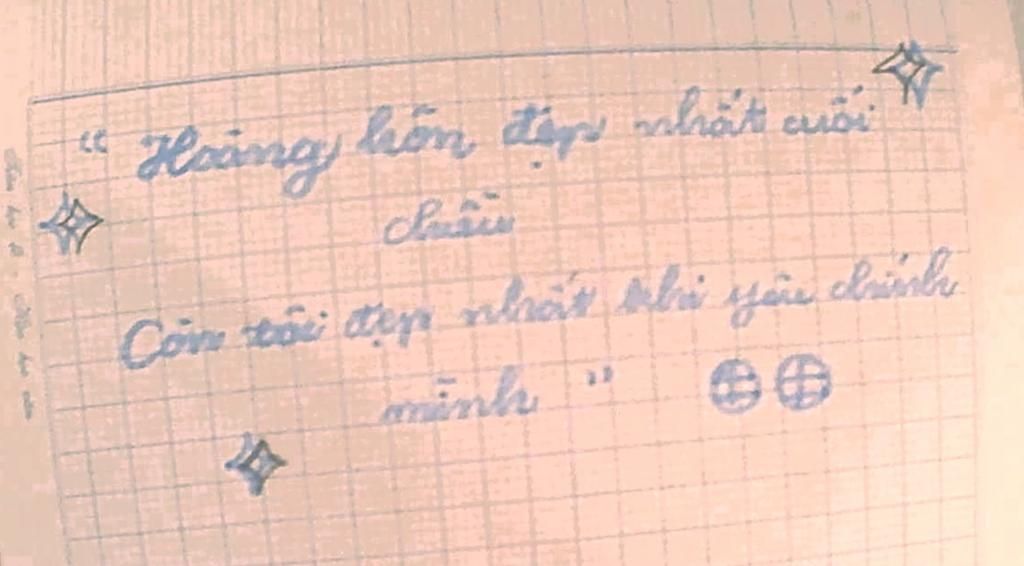 “ Hoàng hôn đẹp nhất cuối
chiều
Còn tôi đẹp nhất khi yêu chính
mình ”